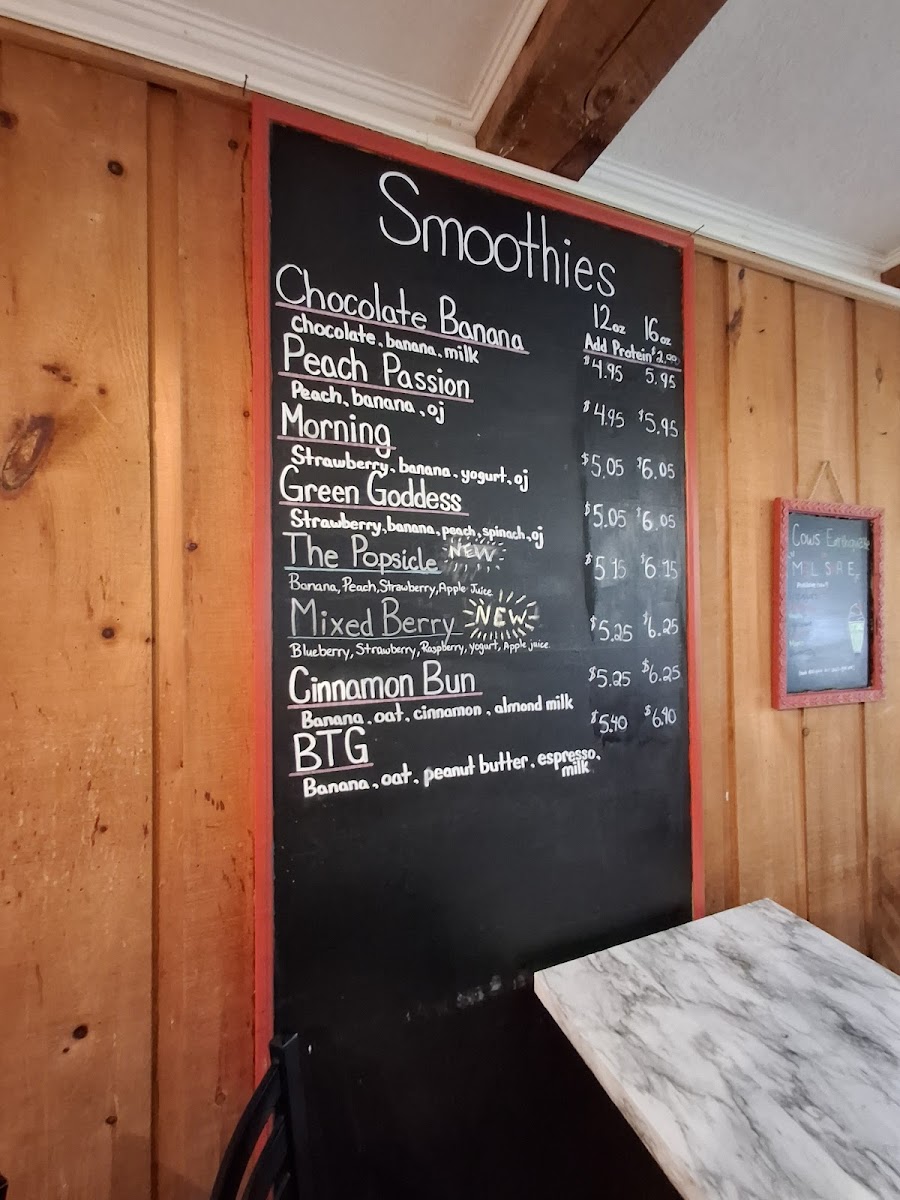 Smoothies
12oz 16oz
Add Protein $2.00
Chocolate Banana
chocolate, banana, milk
$4.95 5.95
Peach Passion
Peach, banana, oj
$4.95 $5.95
Morning
Strawberry, banana, yogurt, oj
$5.05 $6.05
Green Goddess
Strawberry, banana, peach, spinach, oj
$5.05 $6.05
The Popsicle NEW
Banana, Peach, Strawberry, Apple Juice
$5.15 $6.15
Mixed Berry NEW
Blueberry, Strawberry, Raspberry, yogurt, Apple juice
$5.25 $6.25
Cinnamon Bun
Banana, oat, cinnamon, almond milk
$5.25 $6.25
BTG
Banana, oat, peanut butter, espresso,
milk
$5.40 $6.40
Cows